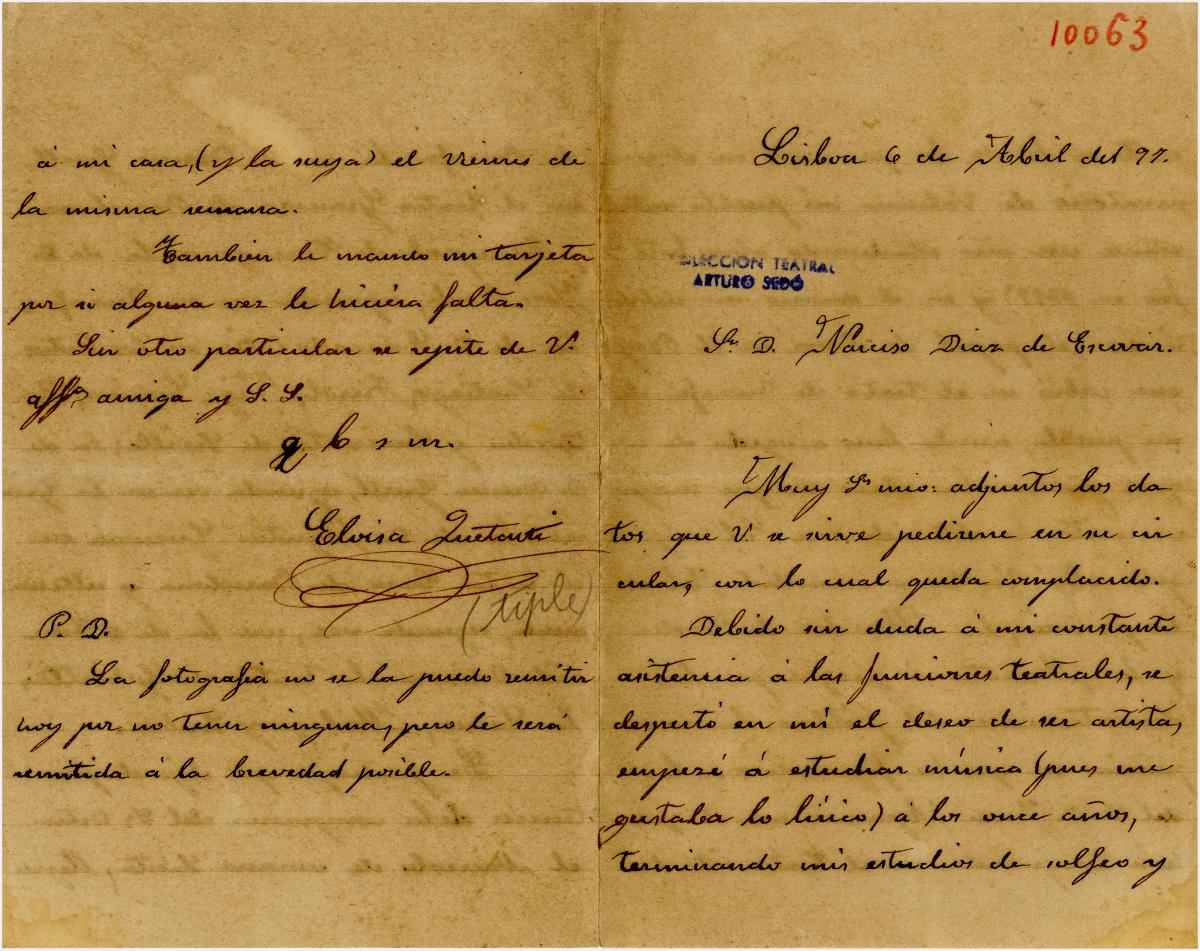 10063
Lisboa 6 de Abril del 97.
COLECCION TEATRAL
ARTURO SEDÓ
Sr. D. Narciso Diaz de Escovar.
Muy Sr mio: adjuntos los da
tos que V. se sirve pedirme en su cir
cular, con lo cual queda complacido.
Debido sin duda á mi constante
asistencia á las funciones teatrales, se
despertó en mi el deseo de ser artista,
empezé á estudiar música (pues me
gustaba lo lírico) á los once años,
terminando mis estudios de solfeo y
á mi casa, (y la suya) el viernes de
la misma semana.
Tambien le mando mi tarjeta
por si alguna vez le hiciéra falta.
Sin otro particular se repite de V.
affma amiga y S. S.
q b s m.
Eloisa
(tiple)
P. D.
La fotografia no se la puedo remitir
hoy por no tener ninguna, pero le será
remitida á la brevedad posible.